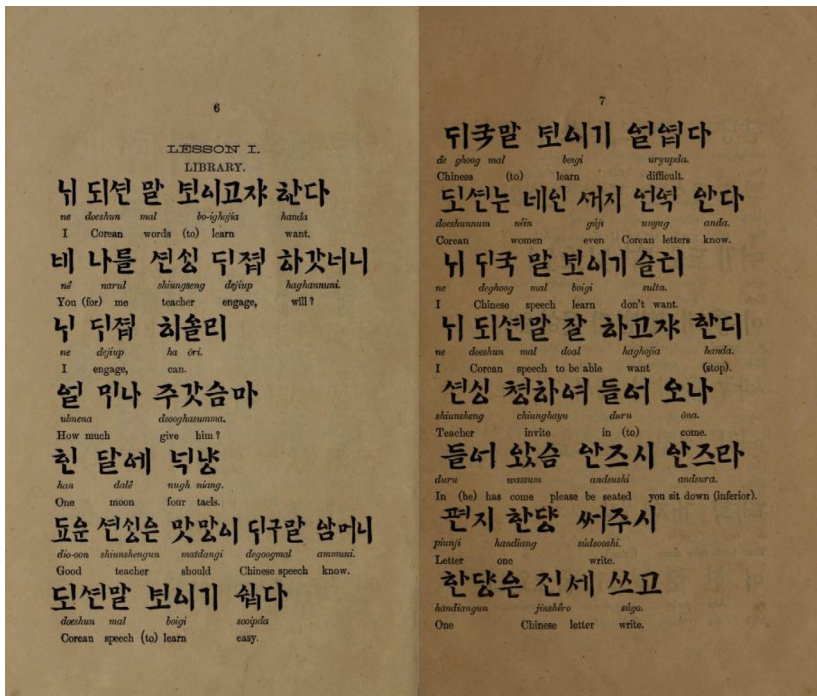 6
LESSON I.
LIBRARY.
ᄂᆡ 되션 말 보이고쟈 ᄒᆞᆫ다
ne doeshun mal bo-ighojia handa
I Corean words (to) learn want.
네 나를 션ᄉᆡᆼ ᄃᆡ졉 하갓너니
nê narul shiungseng dejiup haghannuni.
You (for) me teacher engage, will?
ᄂᆡ ᄃᆡ졉 히올리
ne dejiup ha ōri.
I engage, can.
얼 ᄆᆡ나 주갓슴마
ulmena dsooghasumma.
How much give him?
ᄒᆞᆫ 달에 넉냥
han dalê nugh niang.
One moon four taels.
됴운 션ᄉᆡᆼ은 맛망이 ᄃᆡ구말 암머니
dio-oon shiunshengun matdangi degoogmal ammuni.
Good teacher should Chinese speech know.
되션말 보이기 쉽다
doeshun mal boigi sooipda
Corean speech (to) learn easy.
7
ᄃᆡ국말 보이기 얼엽다
de ghoog mal boigi uryupda.
Chinese (to) learn difficult.
되션는 네인 ᄭᅥ지 언역 안다
doeshunnum nêin gúji unyug anda.
Corean women even Corean letters know.
ᄂᆡ ᄃᆡ국 말 보이기 슬타
ne deghoog mal boigi sulta.
I Chinese speech learn don't want.
ᄂᆡ 되션말 잘 하고쟈 ᄒᆞᆫ디
ne doeshun mal doal haghojia handa.
I Corean speech to be able want (stop).
션ᄉᆡᆼ 쳥하여 들어 오나
shiunsheng chiunghayu duru ōna.
Teacher invite in (to) come.
들어 왔슴 안즈시 안즈라
duru wassum andsushi andsura.
In (be) has come please be seated you sit down (inferior).
편지 한댱 써주시
piunji handiang súdsooshi.
Letter one write.
한댱은 진세 쓰고
handiangun jinshêro súgo.
One Chinese letter write.